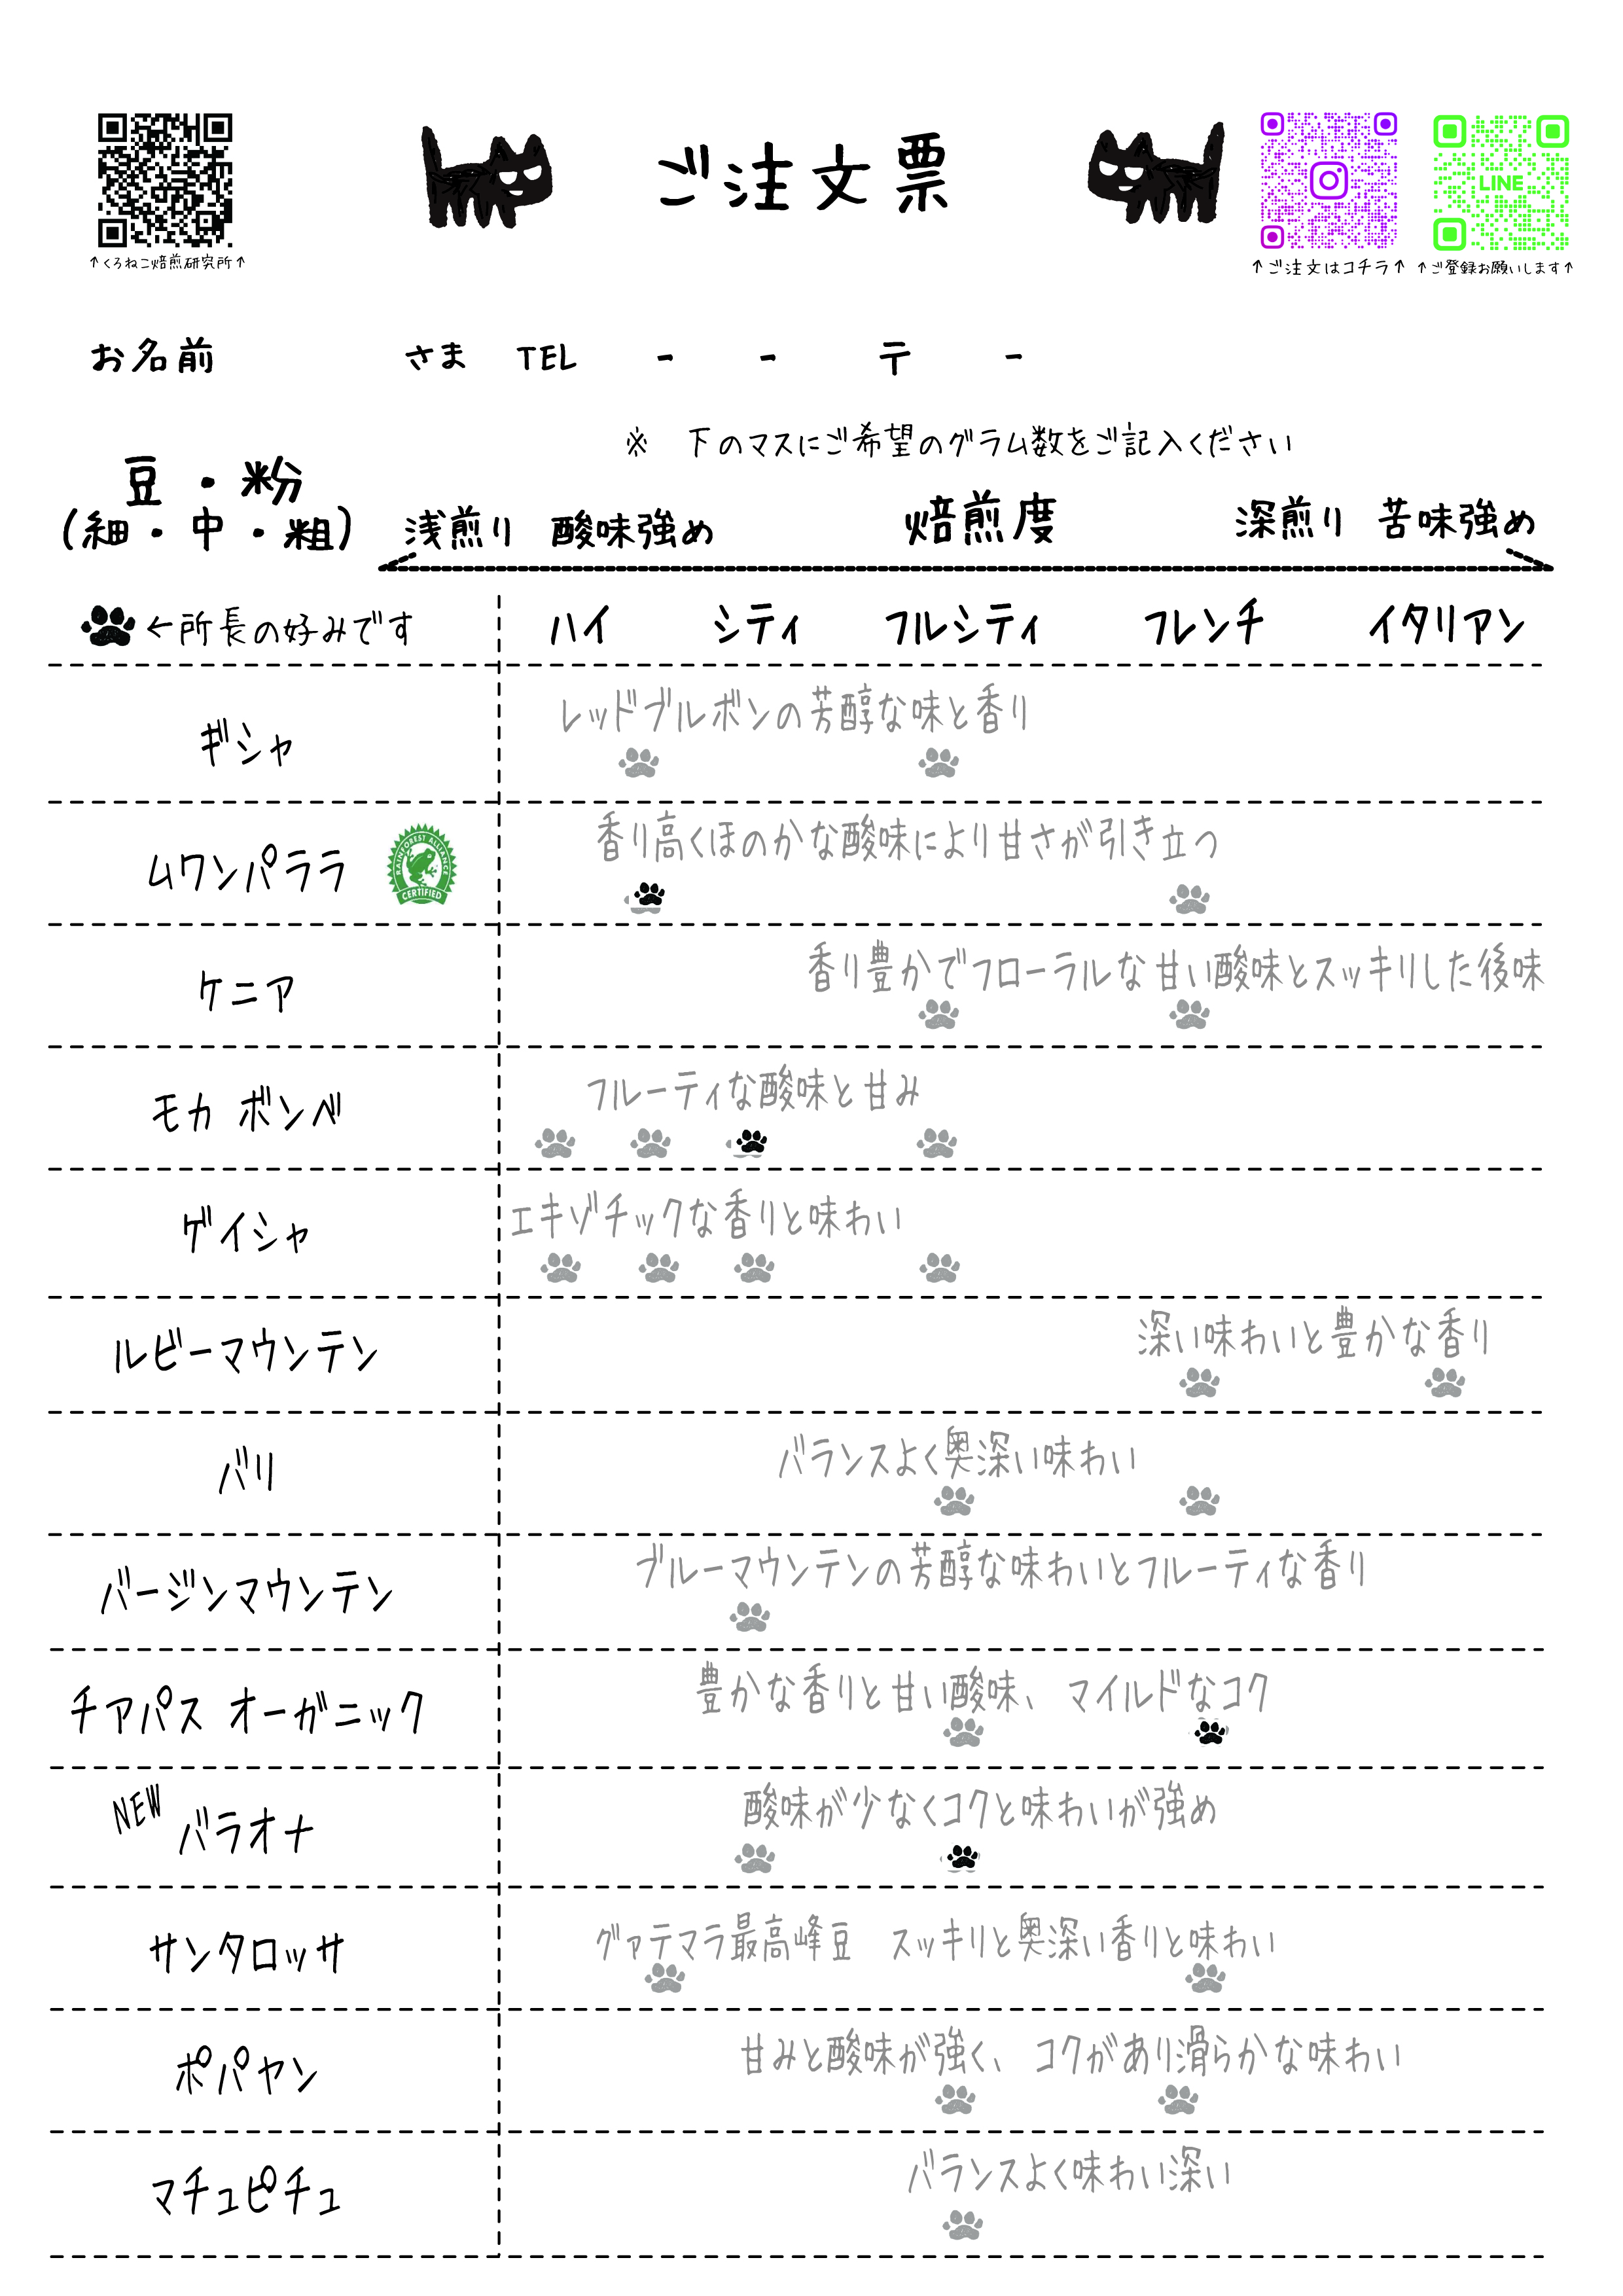 ご注文票
LINE
↑くろねこ焙煎研究所↑
↑ご注文はコチラ↑
↑ご登録お願いします↑
お名前 さま TEL - - 〒 -
※ 下のマスにご希望のグラム数をご記入ください
豆・粉
(細・中・粗)
浅煎り 酸味強め 焙煎度 深煎り 苦味強め
←所長の好みです ハイ シティ フルシティ フレンチ イタリアン
ギシャ
レッドブルボンの芳醇な味と香り
ムワンパララ
RAINFOREST ALLIANCE
CERTIFIED
香り高くほのかな酸味により甘さが引き立つ
ケニア
香り豊かでフローラルな甘い酸味とスッキリした後味
モカ ボンベ
フルーティな酸味と甘み
ゲイシャ
エキゾチックな香りと味わい
ルビーマウンテン
深い味わいと豊かな香り
バリ
バランスよく奥深い味わい
バージンマウンテン
ブルーマウンテンの芳醇な味わいとフルーティな香り
チアパス オーガニック
豊かな香りと甘い酸味、マイルドなコク
NEW
バラオナ
酸味が少なくコクと味わいが強め
サンタロッサ
グァテマラ最高峰豆 スッキリと奥深い香りと味わい
ポパヤン
甘みと酸味が強く、コクがあり滑らかな味わい
マチュピチュ
バランスよく味わい深い